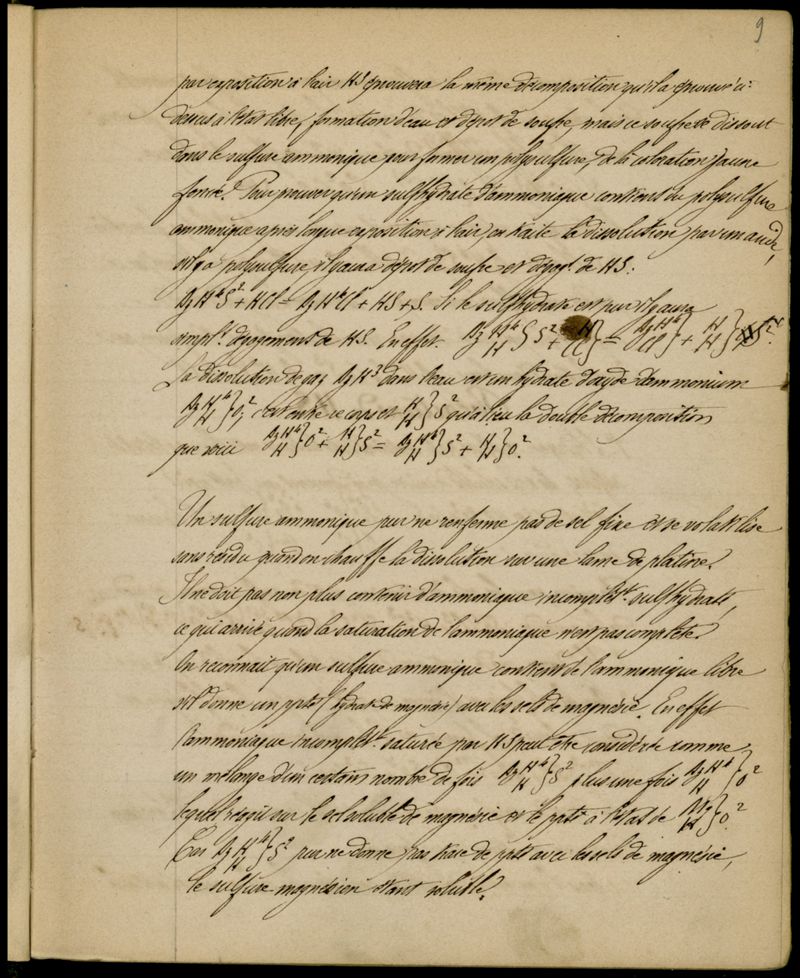 9
par exposition à l'air HS éprouvera la même décomposition qu'il a éprouvé ci-
dessus à l'état libre, formation d'eau et dépôt de soufre, mais ce soufre se dissout
dans le sulfure ammonique pour former un polysulfure, de là coloration jaune
foncé. Pour prouver qu'un sulfhydrate d'ammoniaque contient du polysulfure
ammonique après longue exposition à l'air, on traite la dissolution par un acide,
s'il y a polysulfure, il y aura dépôt de soufre et dégagt de HS:
AzH⁴S² + HCl = AzH⁴Cl + HS + S. Si le sulfhydrate est pur il y aura
simplt dégagement de HS. En effet AzH⁴/H}S² + H/Cl} = AzH⁴/Cl} + H/H}S².
La dissolution de gaz AzH³ dans l'eau est un hydrate d'oxyde d'ammonium
AzH⁴/H}O², c'est entre ce corps et H/H}S² qu'a lieu la double décomposition
que voici AzH⁴/H}O² + H/H}S² = AzH⁴/H}S² + H/H}O².
Un sulfure ammonique pur ne renferme pas de sel fixe et se volatilise
sans résidu quand on chauffe la dissolution sur une lame de platine.
Il ne doit pas non plus contenir d'ammoniaque incomplètt sulfhydraté,
ce qui arrive quand la saturation de l'ammoniaque n'est pas complète.
On reconnait qu'un sulfure ammonique contient de l'ammoniaque libre
s'il donne un ppté (hydrate de magnésie) avec les sels de magnésie. En effet
l'ammoniaque incomplètt saturée par HS peut être considérée comme
un mélange d'un certain nombre de fois AzH⁴/H}S² plus une fois AzH⁴/H}O²
lequel réagit sur le sel soluble de magnésie et le ppte à l'état de Mg/H}O².
Car AzH⁴/H}S² pur ne donne pas trace de ppté avec les sels de magnésie,
le sulfure magnésien étant soluble.